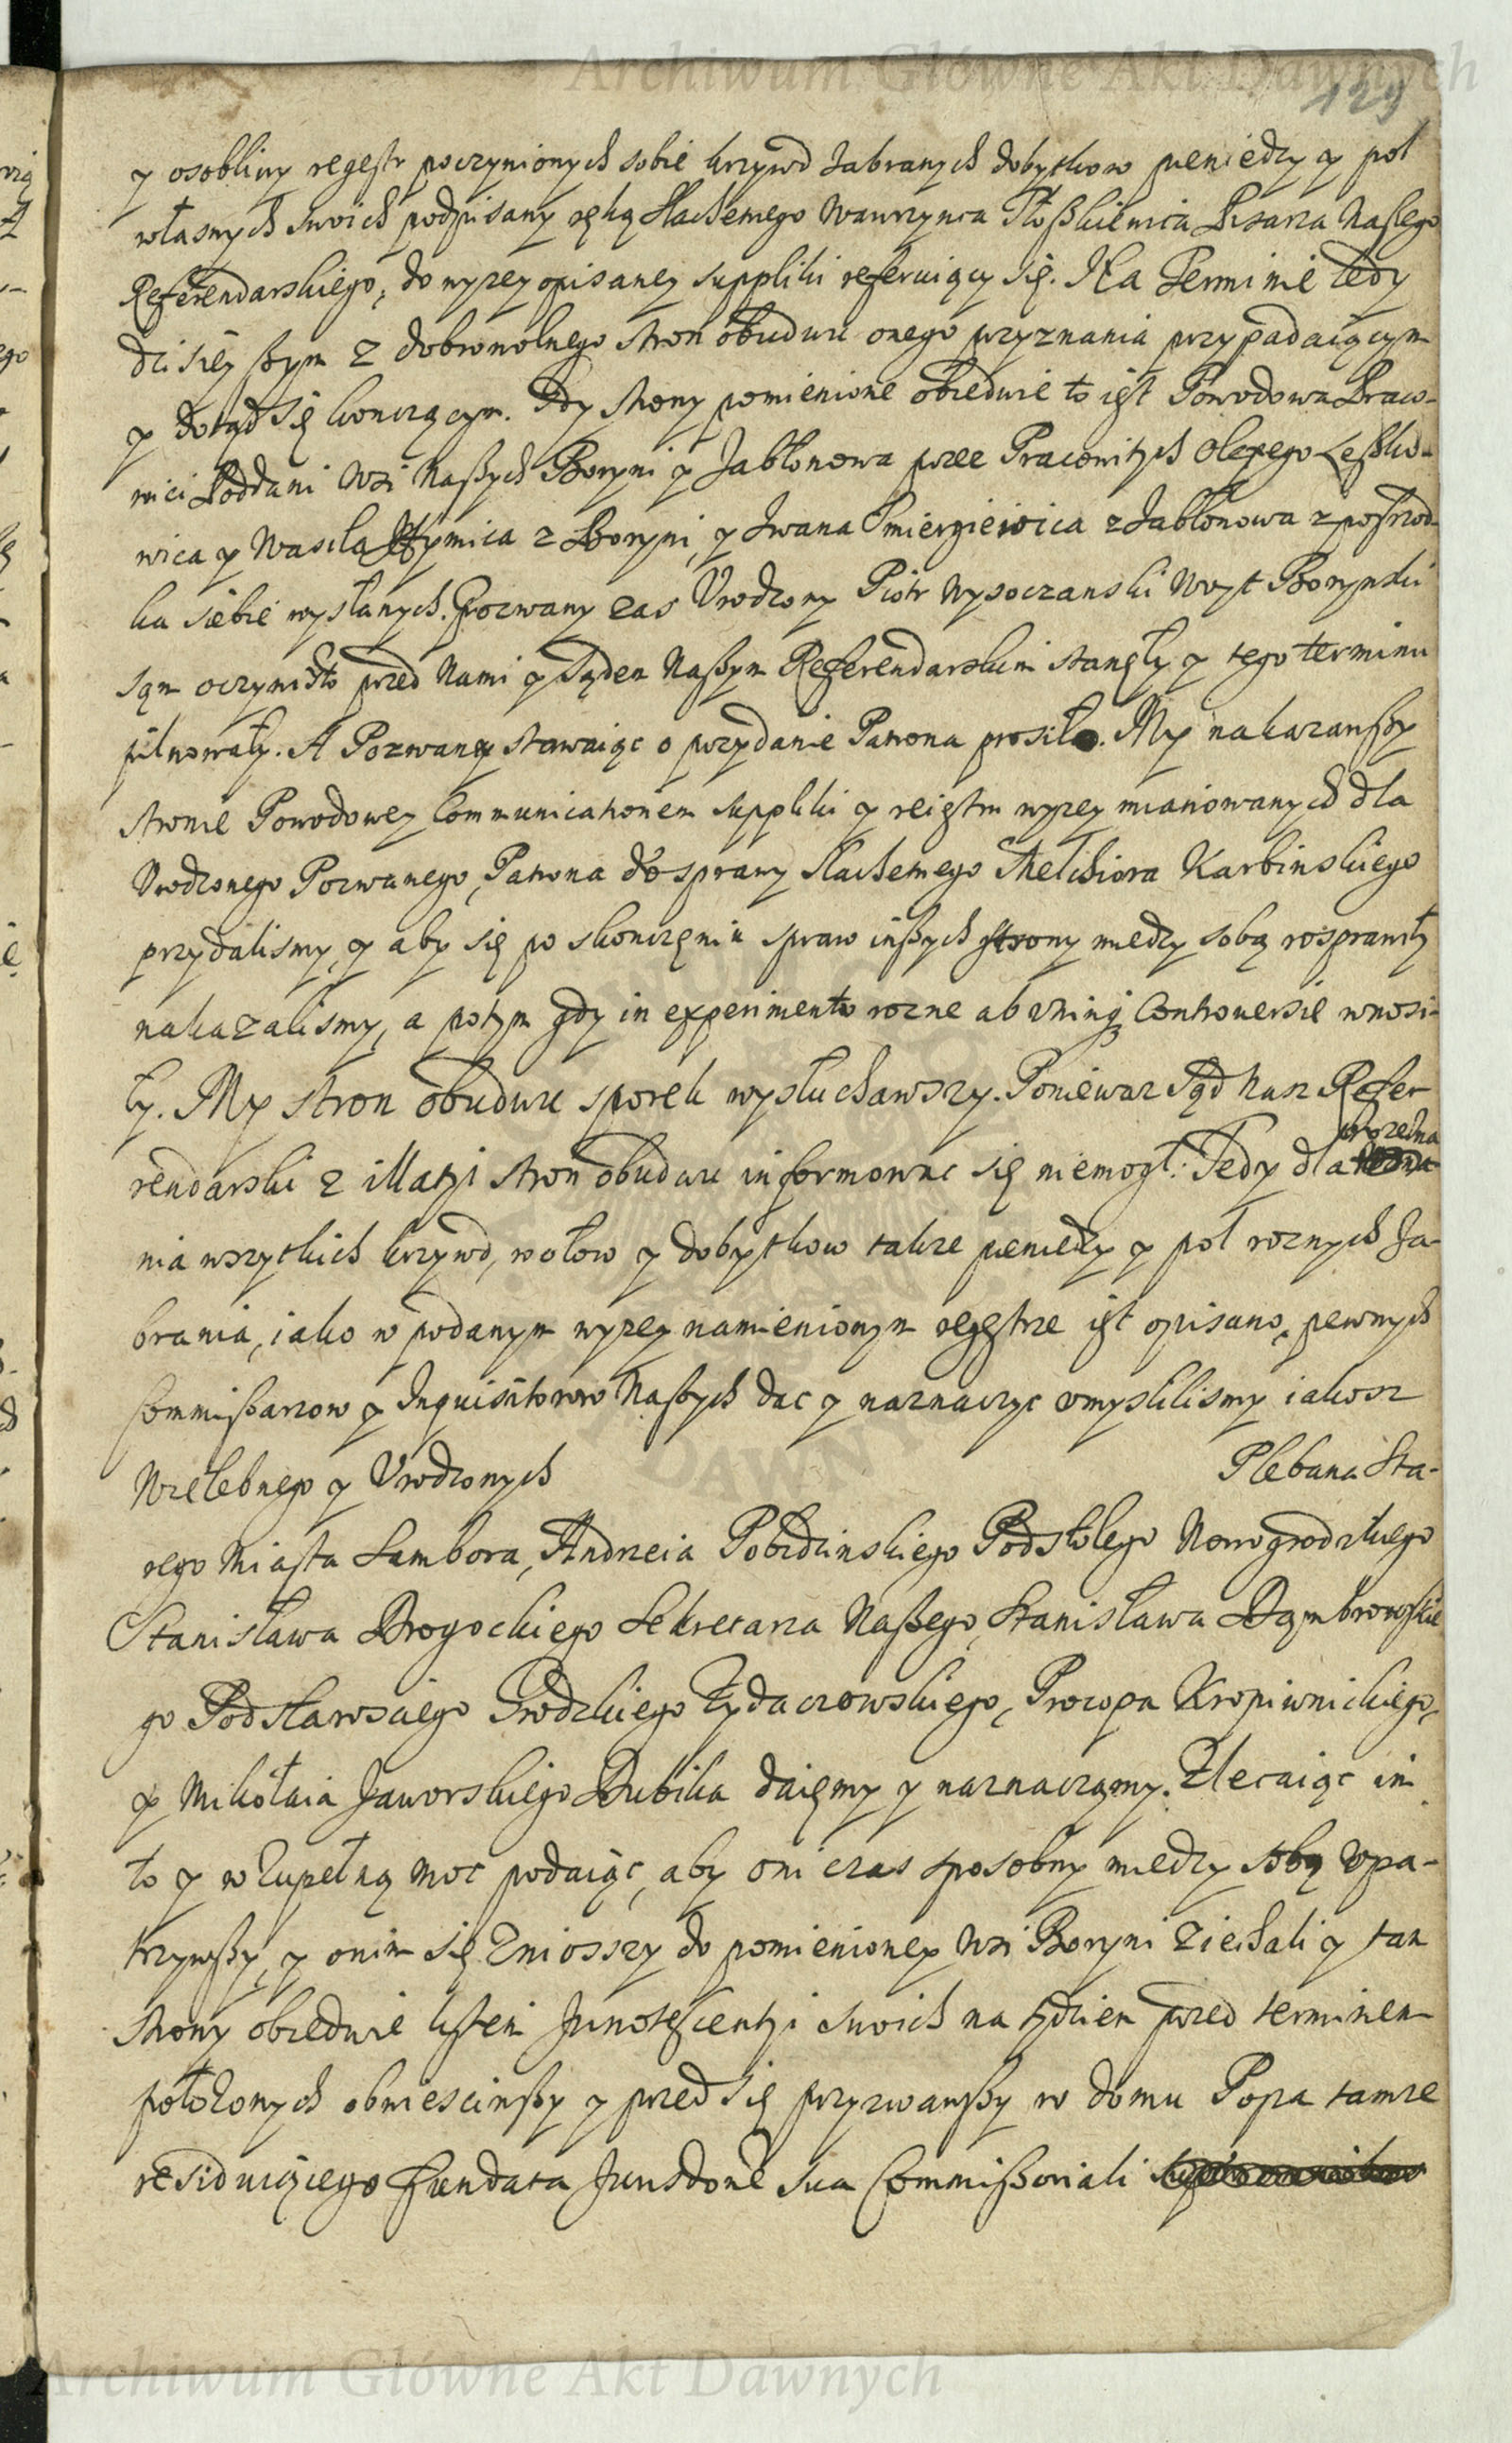 Archiwum Główne Akt Dawnych
129
y osobliwy regestr poczynionych sobie krzywd zabranych dobytkow pieniedzy y pol
własnych swoich podpisany ręką Slachetnego Wawrzynca Pisarza Naszego
Referendarskiego, do wyzey opisaney suppliki referuiący się. Na Terminie tedy
dzisieyszym z dobrowolnego stron obudwu onego przyznania przypadaiącym
y dotąd się konczącym. Gdy strony pomienione obiedwie to iest Powodowa Praco-
wici Poddani Wsi Naszych Boryni y Jabłonowa przez Pracowitych Olexego Leszko-
wica y Wasila Hrymica z Boryni, y Iwana z Jabłonowa z posrzod-
ku siebie wysłanych. Pozwany zas Urodzony Piotr Wysoczanski Woyt Borynski
sąm oczywisto przed Nami y Sądem Naszym Referendarskim stanęły y tego terminu
pilnowały. A Pozwany stawaiąc o przydanie Patrona prosił. My nakazawszy
stronie Powodowey Communicationem suppliki y reiestru wyzey mianowanych dla
Urodzonego Pozwanego, Patrona do sprawy Slachetnego Melchiora Karbinskiego
przydalismy, y aby się po skonczęniu spraw inszych strony miedzy sobą rosprawiły
nakazalismy, a potym gdy in experimento rozne ab utrinq3 Controversie wnosi-
ły. My stron obudwu sporek wysłuchawszy. Poniewaz Sąd Nasz Refer-
rendarski z illatyi stron obudwu informowac się niemogł: Tedy dla
nia wszytkich krzywd, wołow y dobytkow takze pieniedzy y pol roznych Za-
brania, iako w podanym wyzey namienionym regestrze iest opisano, pewnych
Commissarzow y Inquisitorow Naszych dac y naznaczyc umyslilismy iakosz
Wielebnego y Urodzonych Plebana Sta-
rego Miasta Sambora, Andrzeia Pobidzinskiego Podstolego Nowogrodzkiego
Stanisława Brogockiego Sekretarza Naszego, Stanisława Dąmbrowskie
go Podstarosciego Grodzkiego Zydaczowskiego, Procopa Kropiwnickiego,
y Mikołaia Jaworskiego Dubika daięmy y naznaczamy. Zlecaiąc im
to y w zupełną moc podaiąc, aby oni czas sposobny miedzy sobą upa-
trzywszy, y onim się zniosszy do pomienioney Wsi Boryni Ziechali y tam
strony obiedwie listem Innotescentyi swoich na tydzien przed terminem
położonych obwiesciwszy y przed się przyzwawszy w domu Popa tamze
residuiącego fundata Jurisdone sua Commissoriali
Archiwum Główne Akt Dawnych